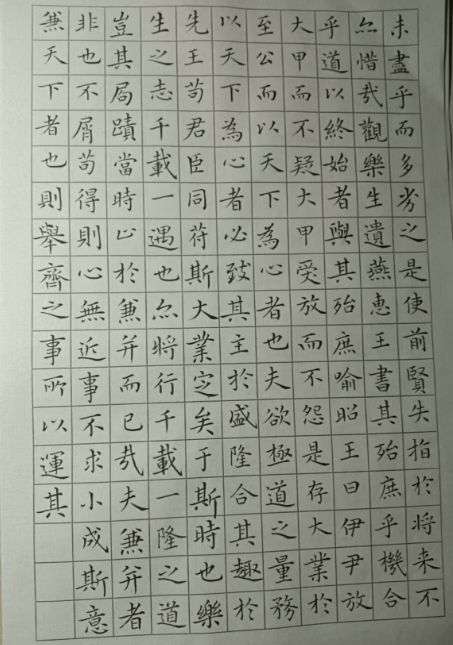 未盡乎而多劣之是使前賢失指於将来不
亦惜哉觀樂生遺燕惠王書其殆庶乎機合
乎道以終始者與其殆庶喻昭王曰伊尹放
大甲而不疑大甲受放而不怨是存大業於
至公而以天下為心者也夫欲極道之量務
以天下為心者必致其主於盛隆合其趣於
先王苟君臣同苻斯大業定矣于斯時也樂
生之志千載一遇也亦将行千載一隆之道
豈其局蹟當時止於兼并而已哉夫兼并者
非也不屑苟得則心無近事不求小成斯意
兼天下者也則舉齊之事所以運其